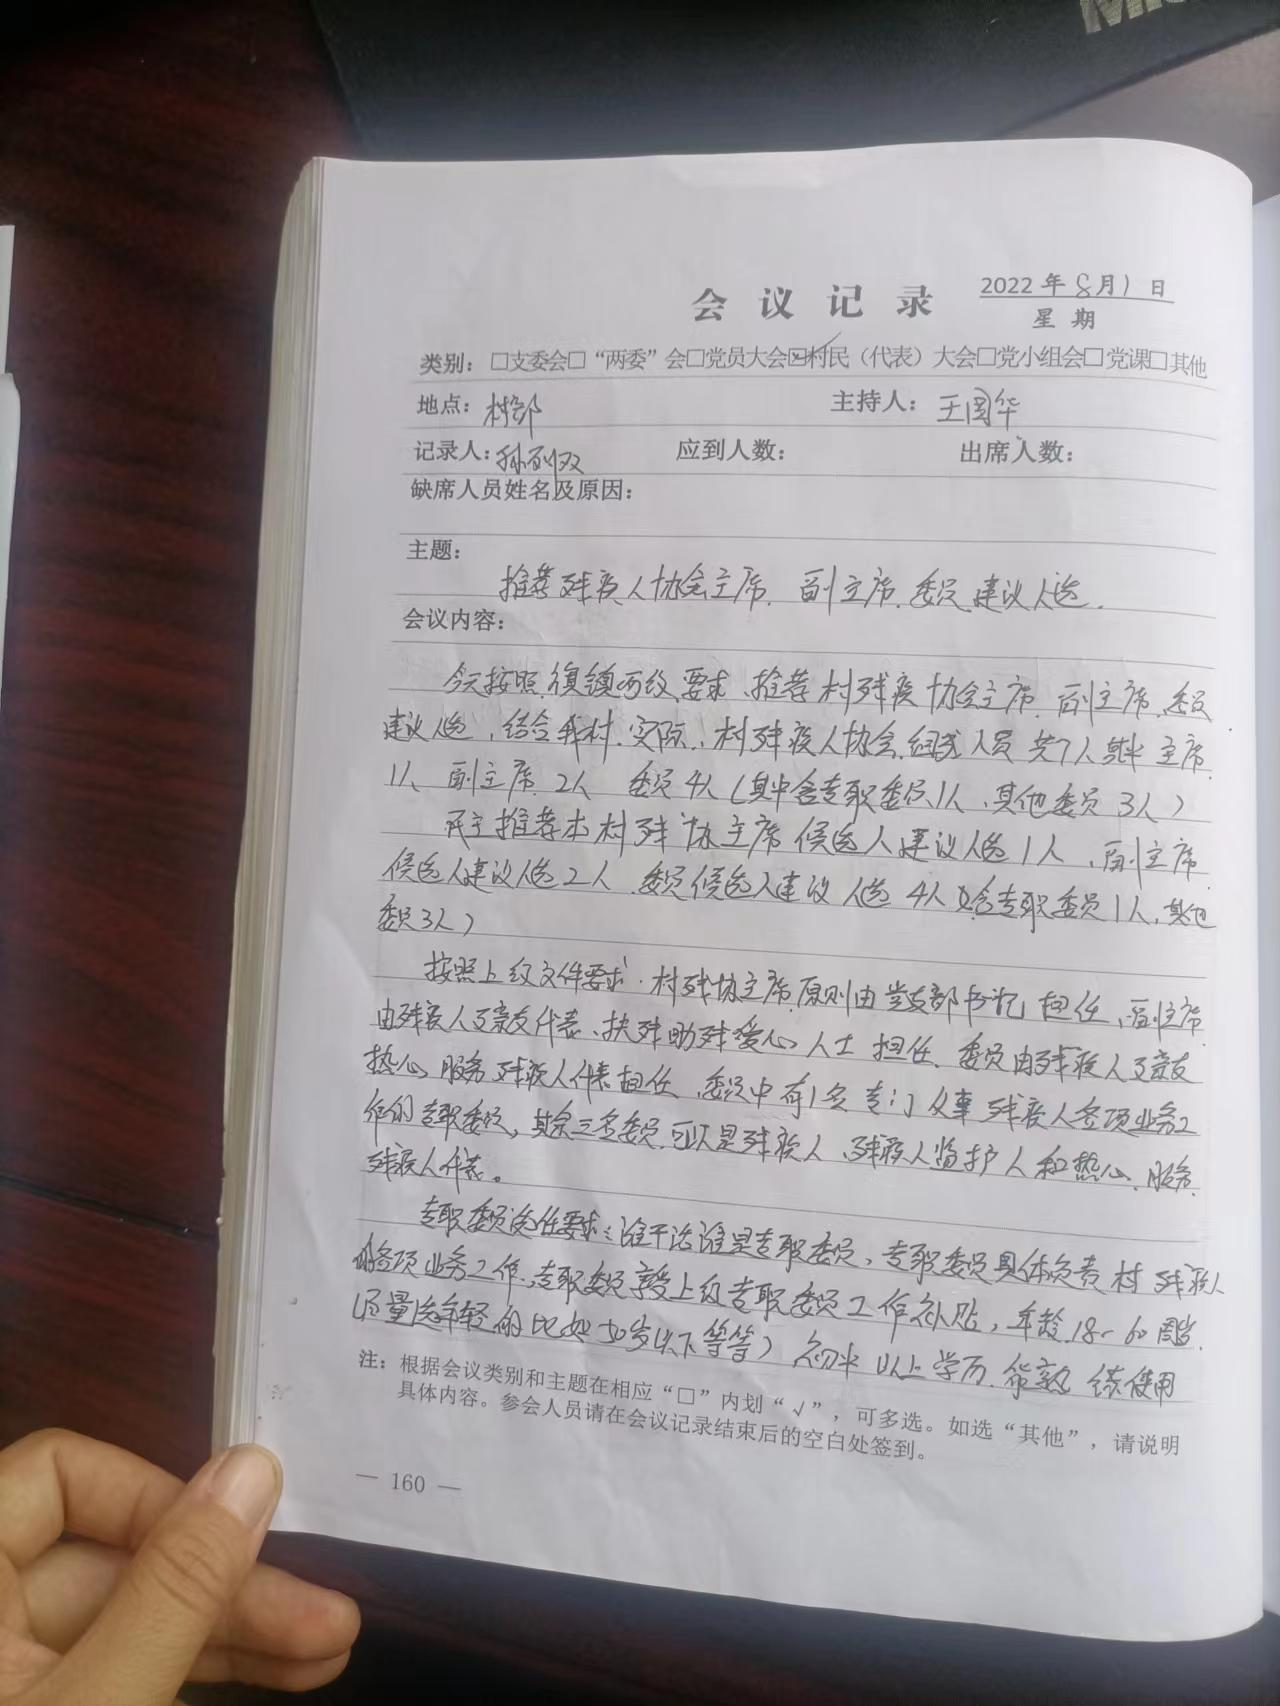 会议记录
2022年8月1日
星期
类别：□支委会□“两委”会□党员大会☑村民（代表）大会□党小组会□党课□其他
地点：村部 主持人：王国华
记录人：孙列双 应到人数： 出席人数：
缺席人员姓名及原因：
主题：
推荐残疾人协会主席、副主席、委员建议人选.
会议内容：
今天按照 镇两级要求、推荐村残疾协会主席、副主席、委员
建议人选，结合我村实际，村残疾人协会组成人员共7人其中主席
1人、副主席2人 委员4人（其中含专职委员1人、其他委员3人）
民主推荐本村残协主席候选人建议人选1人、副主席
候选人建议人选2人、委员候选人建议人选4人（含专职委员1人，其他
委员3人）
按照上级文件要求，村残协主席原则由党支部书记担任、副主席
由残疾人亲友代表、扶残助残爱心人士担任、委员由残疾人亲友
热心服务残疾人代表担任、委员中有1名专门从事残疾人各项业务工
作的专职委员，其余三名委员可以是残疾人、残疾人监护人和热心服务
残疾人代表。
专职委员选任要求：谁干活谁是专职委员，专职委员具体负责村残疾人
的各项业务工作，专职委员享受上级专职委员工作补贴，年龄18-60周岁
（尽量选年轻的比如50岁以下等等）初中以上学历、能熟练使用
注：根据会议类别和主题在相应“□”内划“√”，可多选。如选“其他”，请说明
具体内容。参会人员请在会议记录结束后的空白处签到。
— 160 —